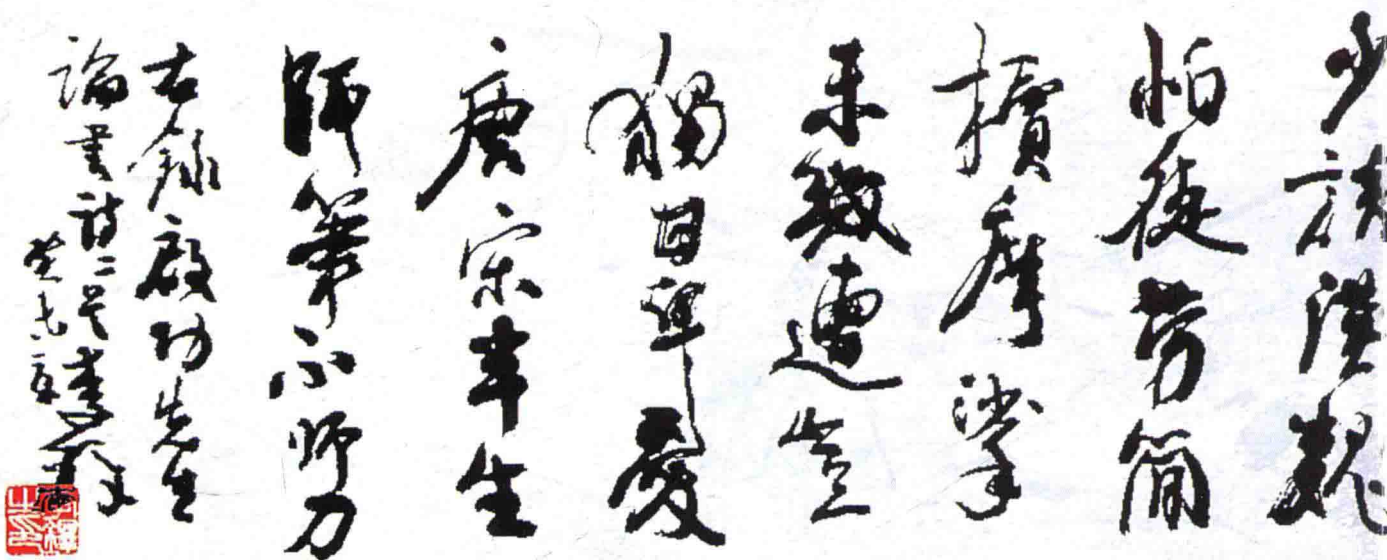 少談漢魏
怕徒勞簡
牘摩挲
未幾遭豈
獨甘卑愛
唐宋半生
師筆不师刀
右錄啟功先生
論書詩